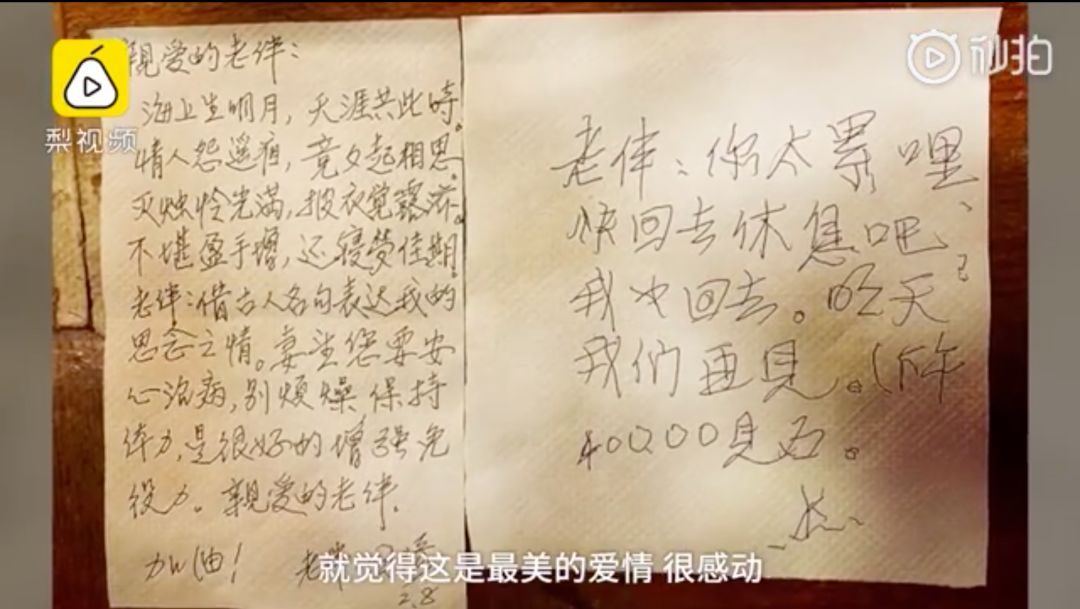 亲爱的老伴：
海上生明月，天涯共此时。
情人怨遥夜，竟夕起相思。
灭烛怜光满，披衣觉露滋。
不堪盈手赠，还寝梦佳期。
老伴：借古人名句表达我的
思念之情。妻望您要安
心治病，别烦燥保持
体力，是很好的增强免
役力。亲爱的老伴，
加油！
2.8
老伴：你太累哩、
快回去休息吧
我也回去。明天
我们再见。(下午
见面。
梨视频
秒拍
就觉得这是最美的爱情 很感动